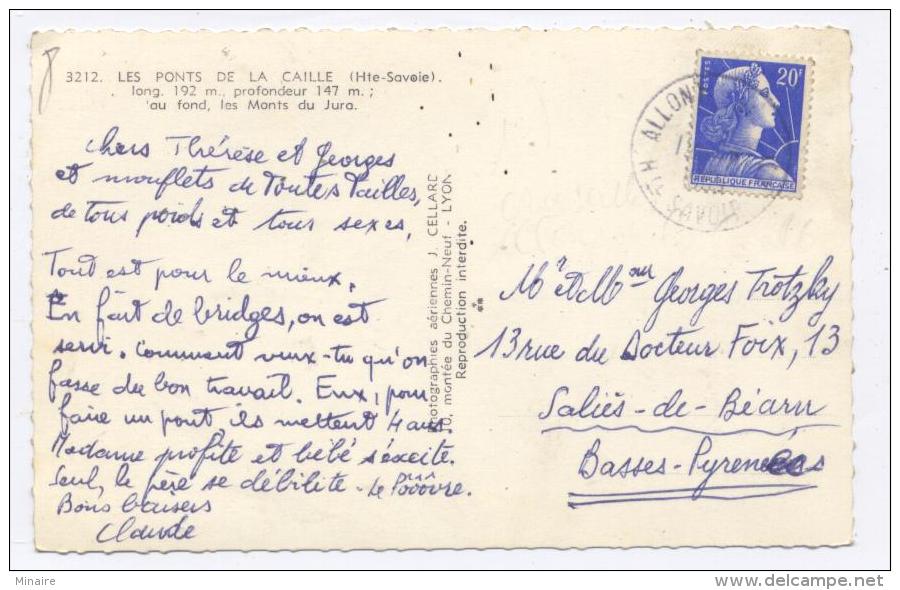 3212. LES PONTS DE LA CAILLE (Hte-Savoie).
long. 192 m., profondeur 147 m. ;
au fond, les Monts du Jura.
Chers Thérèse et Georges
et mouflets de toutes tailles,
de tous poids et tous sexes,
Tout est pour le mieux.
En fait de bridges, on est
servi. Comment veux-tu qu'on
fasse du bon travail. Eux, pour
faire un pont, ils mettent 4 ans.
Madame profite et bébé s'excite.
Seul, le père se débilite - Le Pôôôvre.
Bons baisers
Claude
Photographies aériennes J. CELLARD
montée du Chemin-Neuf - LYON
Reproduction interdite.
POSTES
20F
REPUBLIQUE FRANÇAISE
ALLON
HTE
SAVOIE
Mr et Mme Georges Trotzky
13 rue du Docteur Foix, 13
Saliès-de-Béarn
Basses-Pyrenées
Minaire
delcampe.net